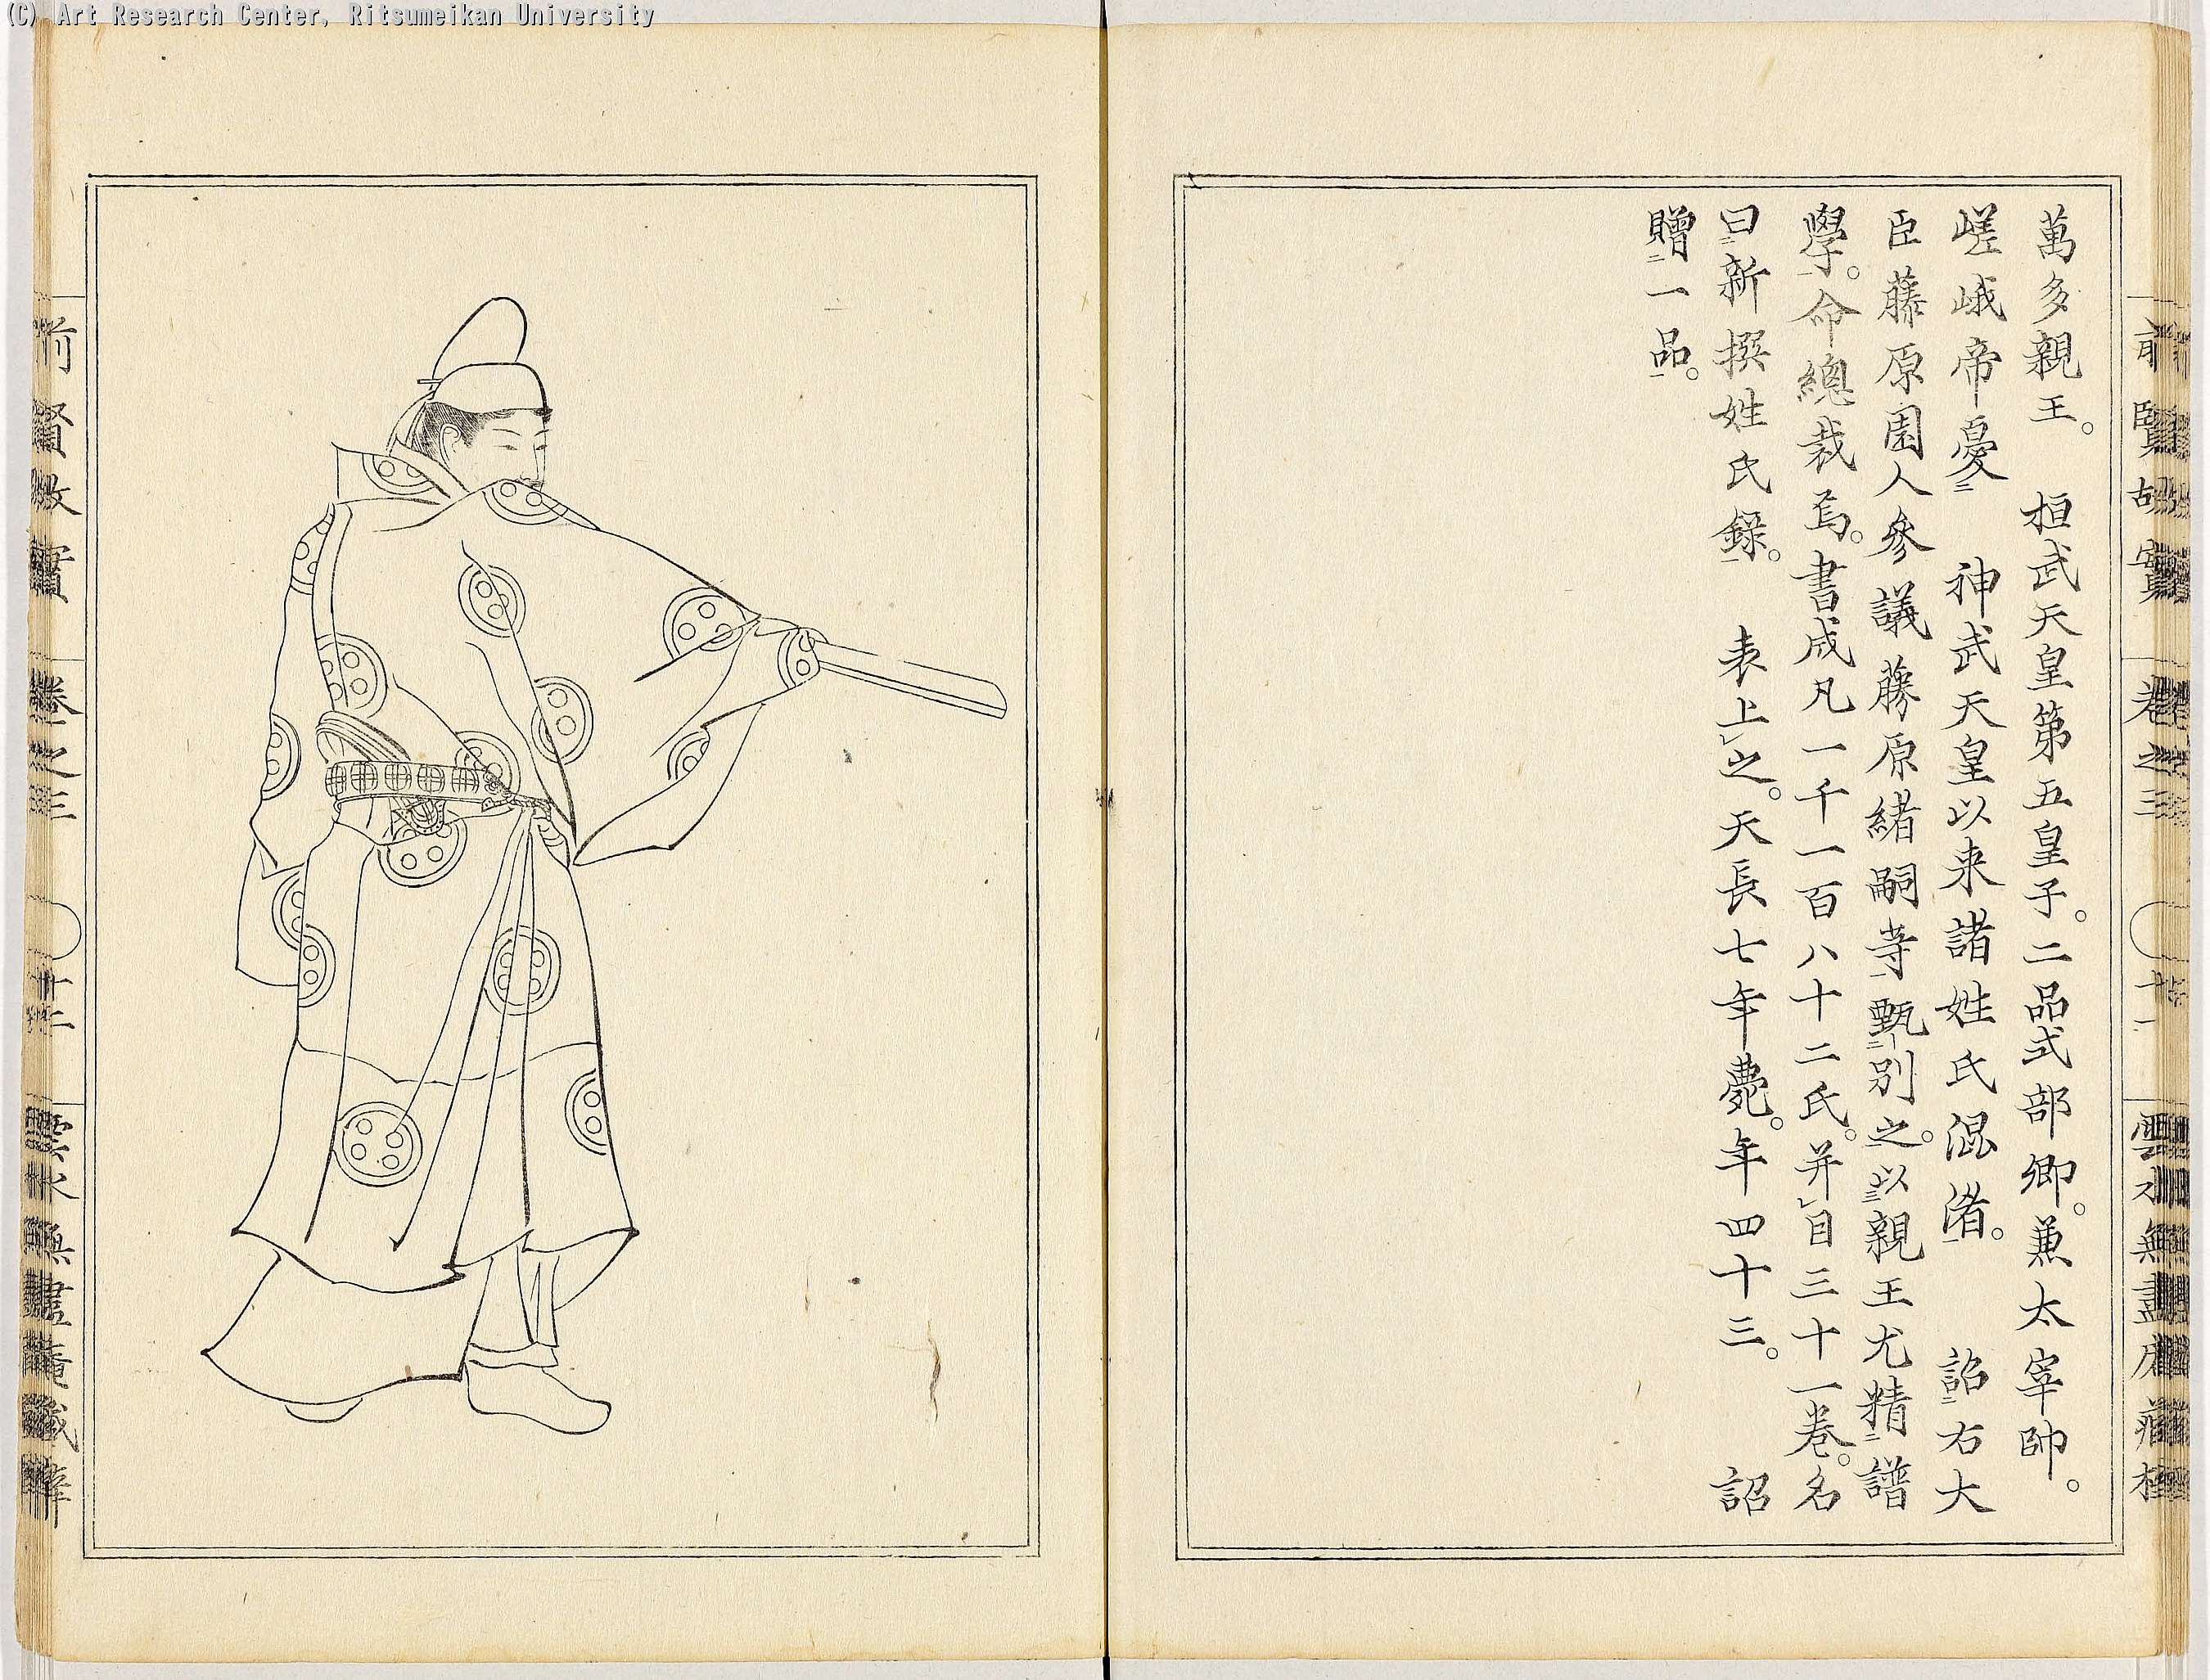 (C) Art Research Center, Ritsumeikan University
萬多親王。　桓武天皇第五皇子。二品式部卿。兼太宰帥。
嵯峨帝憂二　神武天皇以来諸姓氏混淆一。　詔二右大
臣藤原園人參議藤原緒嗣等一甄二別之一。以三親王尤精二譜
學一。命總裁焉。書成凡一千一百八十二氏。并レ目三十一卷。名
曰二新撰姓氏錄一。　表上レ之。天長七年薨。年四十三。　詔
贈二一品一。
前賢故實
卷之三
十二